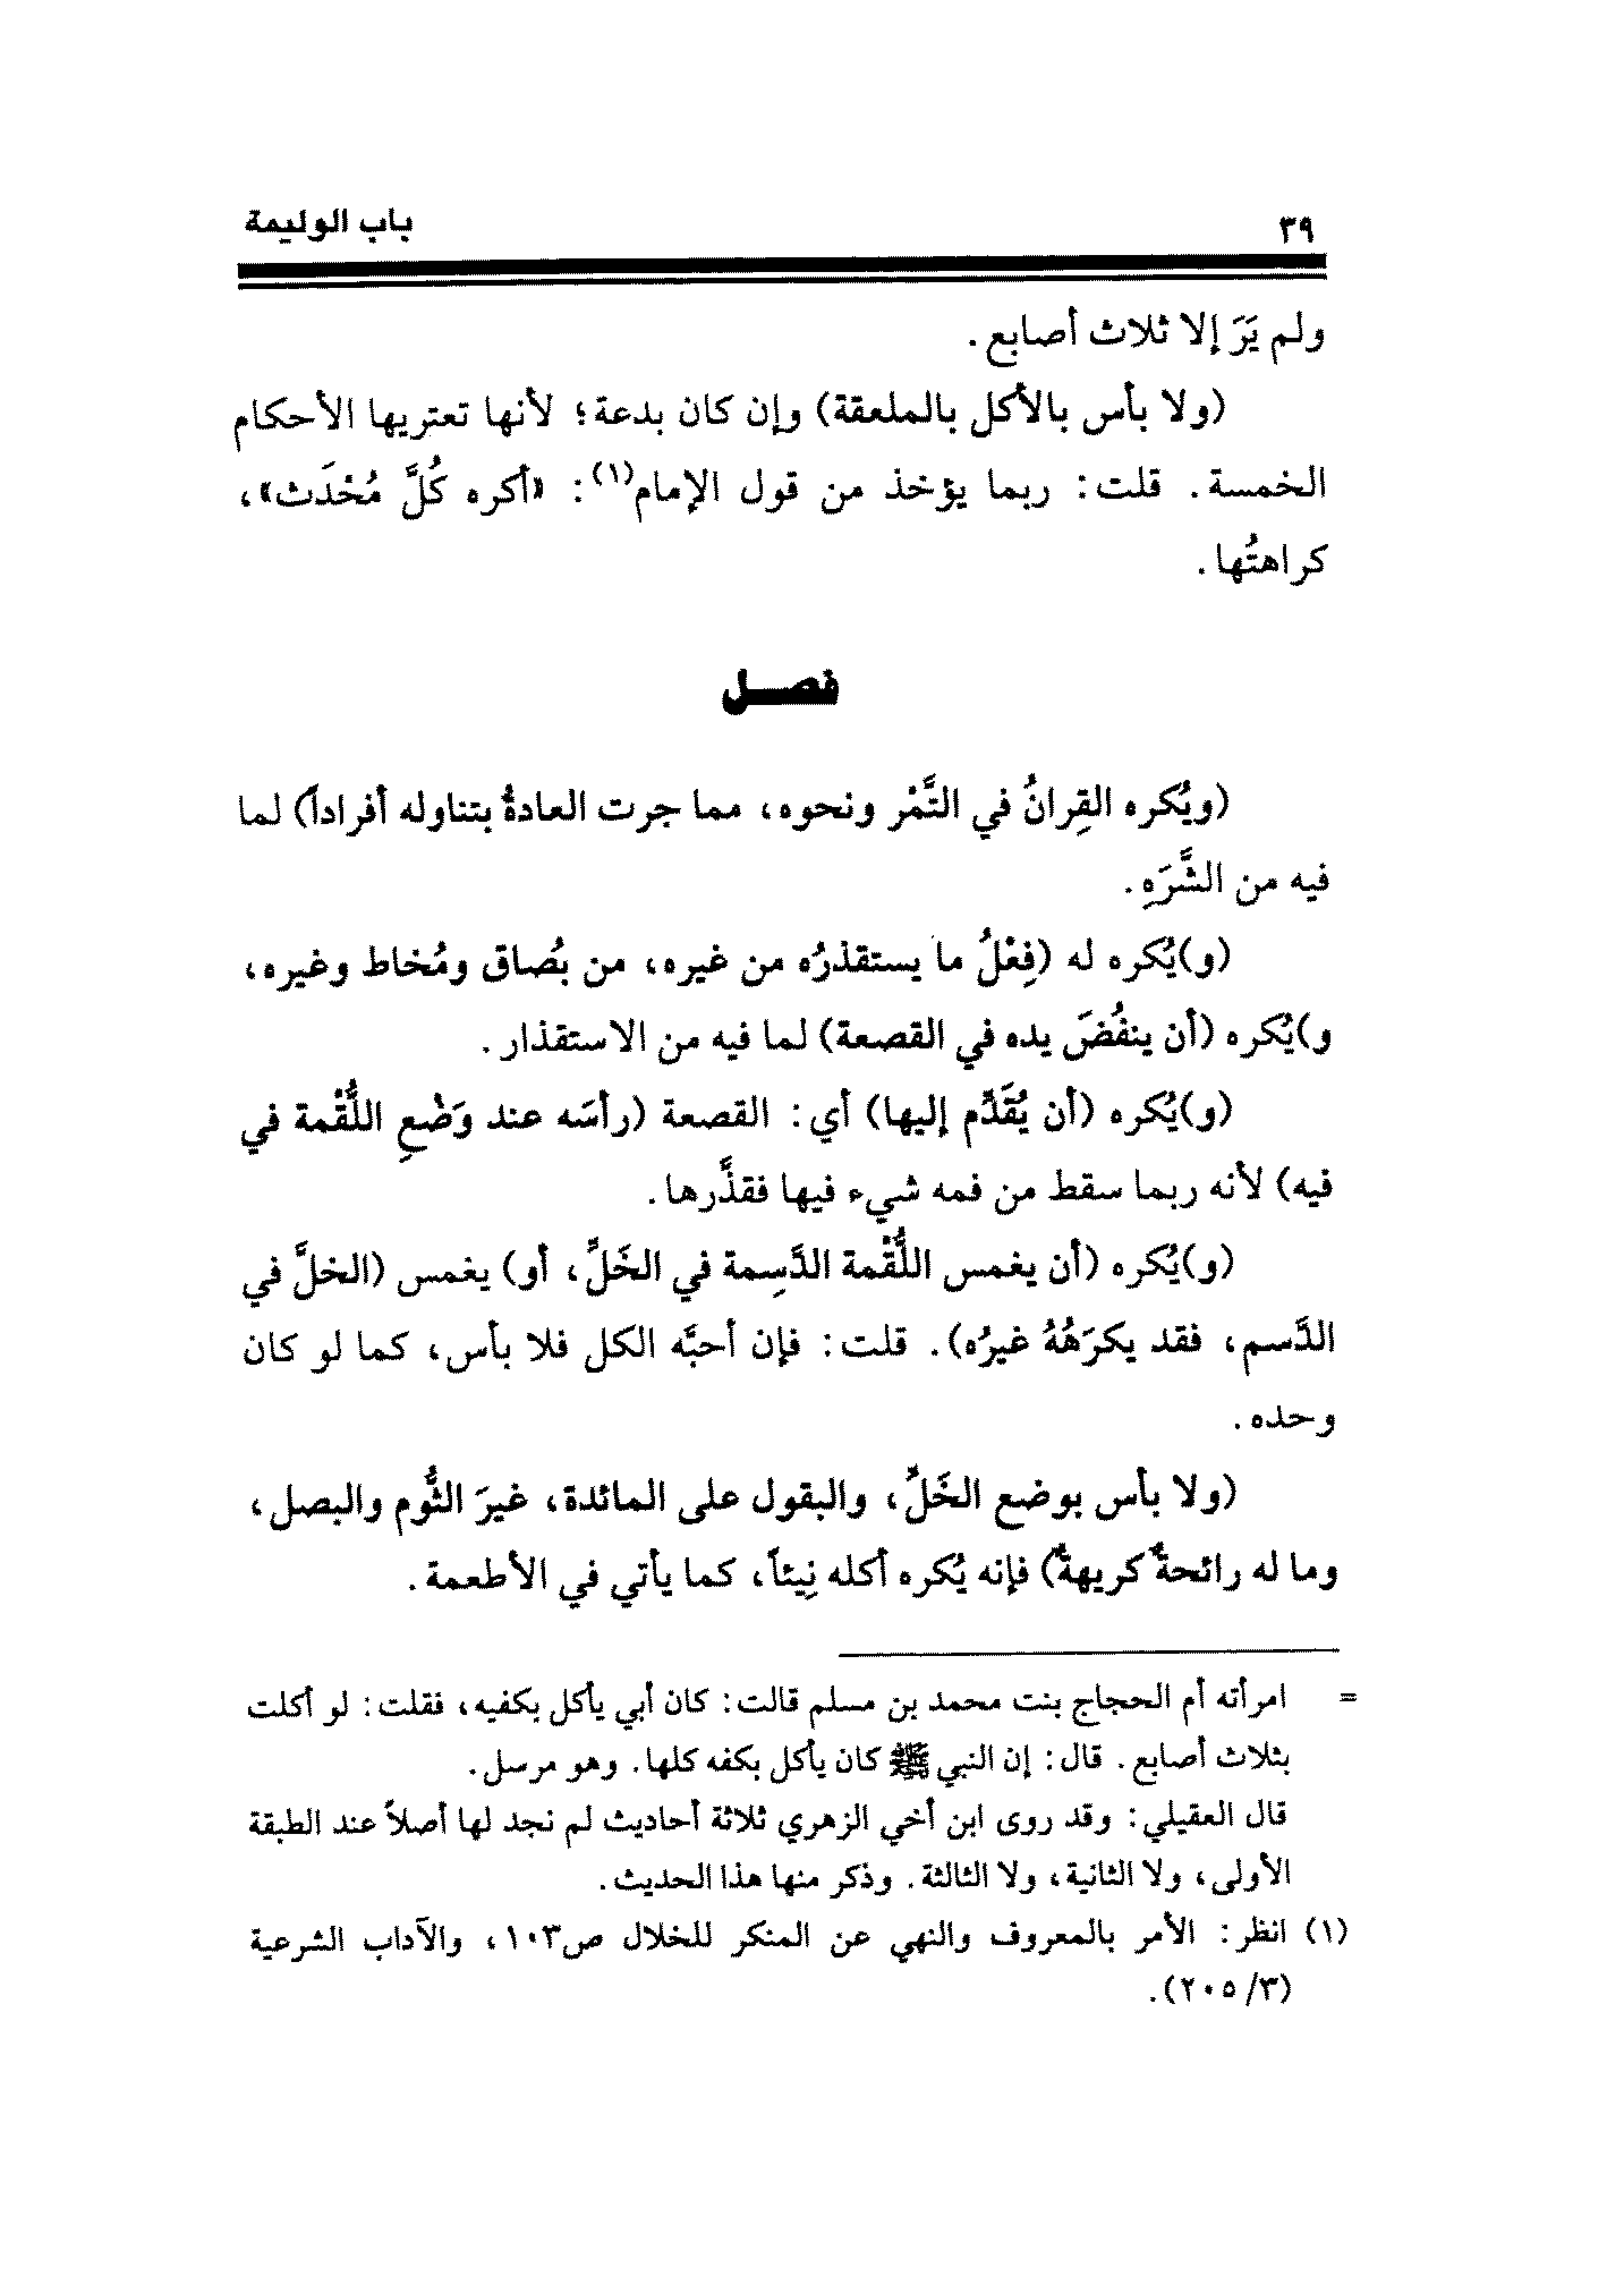 ٣٩
باب الوليمة
ولم يَرَ إلا ثلاث أصابع.
(ولا بأس بالأكل بالملعقة) وإن كان بدعة؛ لأنها تعتريها الأحكام
الخمسة. قلت: ربما يؤخذ من قول الإمام(١): «أكره كُلَّ مُحْدَث»،
كراهتُها.
فصـــل
(ويُكره القِرانُ في التَّمْر ونحوه، مما جرت العادةُ بتناوله أفراداً) لما
فيه من الشَّرَهِ.
(و)يُكره له (فِعْلُ ما يستقذرُه من غيره، من بُصاق ومُخاط وغيره،
و)يُكره (أن ينفُضَ يده في القصعة) لما فيه من الاستقذار.
(و)يُكره (أن يُقَدِّم إليها) أي: القصعة (رأسَه عند وَضْعِ اللُّقْمة في
فيه) لأنه ربما سقط من فمه شيء فيها فقذَّرها.
(و)يُكره (أن يغمس اللُّقْمة الدَّسِمة في الخَلِّ، أو) يغمس (الخلَّ في
الدَّسم، فقد يكرَهُهُ غيرُه). قلت: فإن أحبَّه الكل فلا بأس، كما لو كان
وحده.
(ولا بأس بوضع الخَلِّ، والبقول على المائدة، غيرَ الثُّوم والبصل،
وما له رائحةٌ كريهةٌ) فإنه يُكره أكله نِيئاً، كما يأتي في الأطعمة.
= امرأته أم الحجاج بنت محمد بن مسلم قالت: كان أبي يأكل بكفيه، فقلت: لو أكلت
بثلاث أصابع. قال: إن النبي ﷺ كان يأكل بكفه كلها. وهو مرسل.
قال العقيلي: وقد روى ابن أخي الزهري ثلاثة أحاديث لم نجد لها أصلاً عند الطبقة
الأولى، ولا الثانية، ولا الثالثة. وذكر منها هذا الحديث.
(١) انظر: الأمر بالمعروف والنهي عن المنكر للخلال ص١٠٣، والآداب الشرعية
(٣/ ٢٠٥).